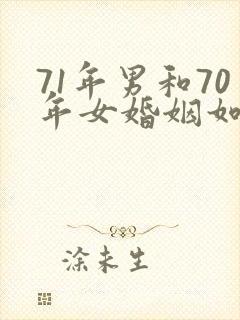 71年男和70
年女婚姻如
涂未生